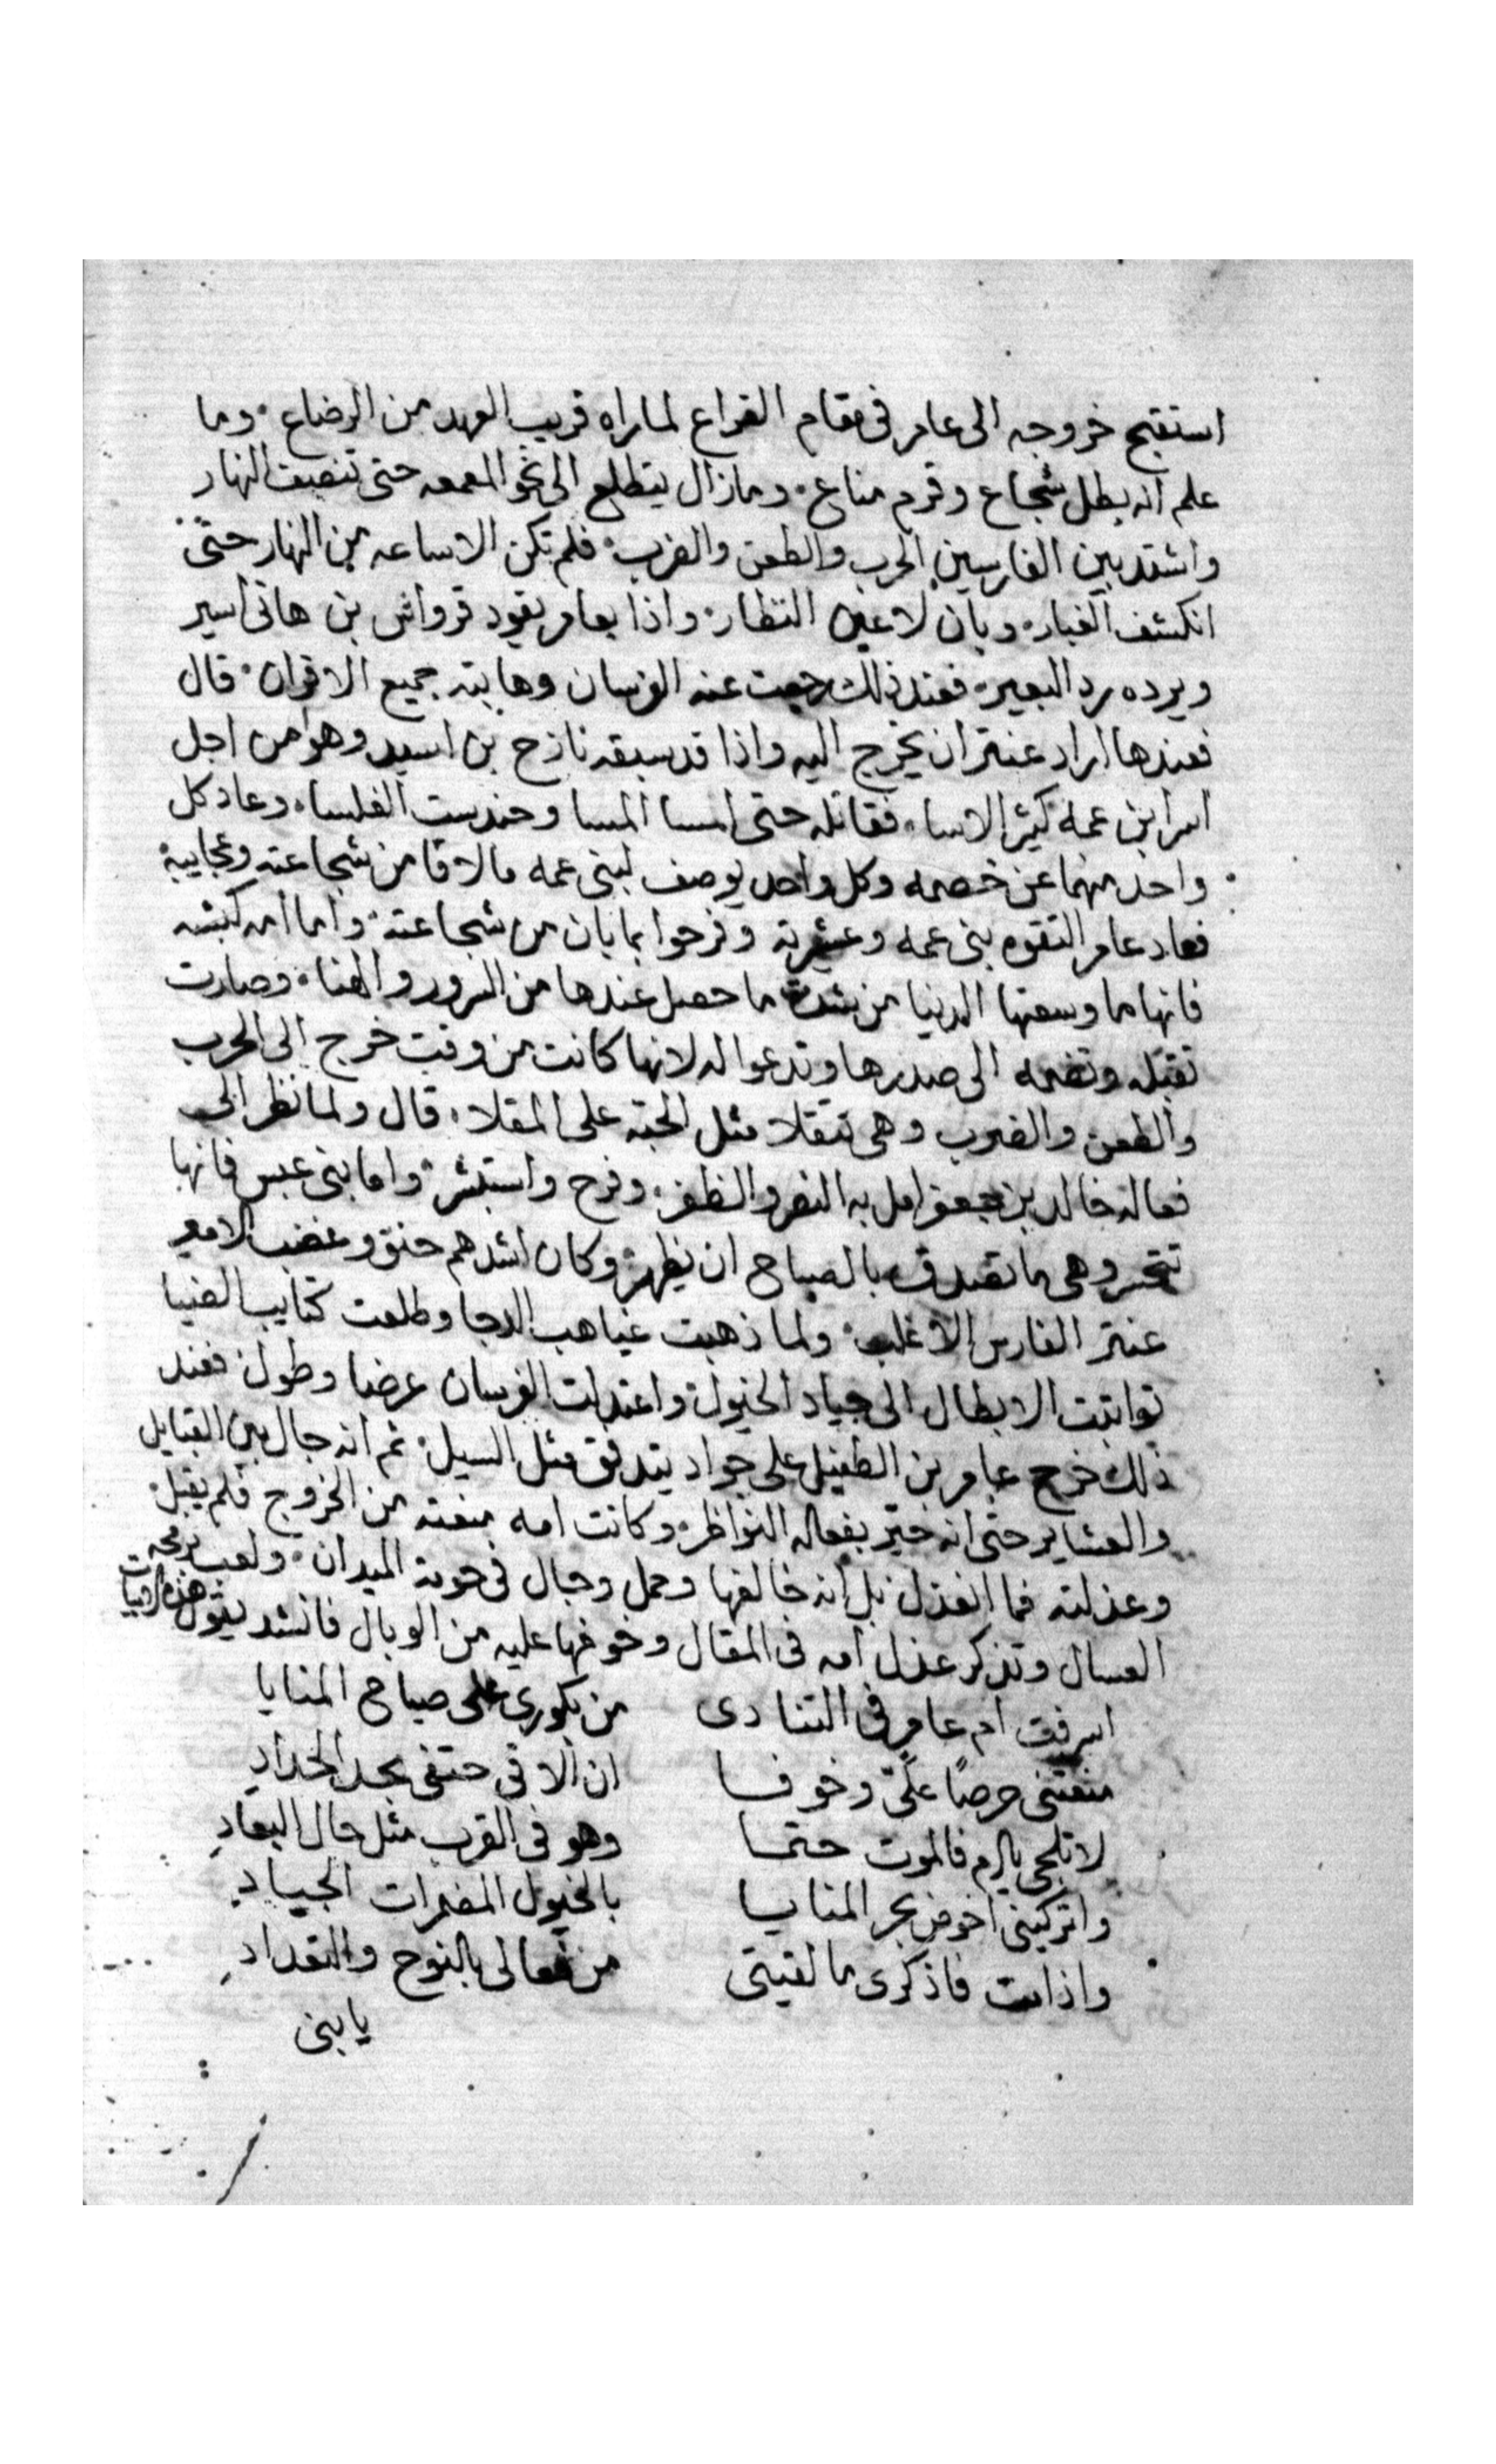 استقبح خروجه الى عامر فى مقام القراع لما راه قريب العهد من الرضاع. وما
علم انه بطل شجاع وقرم مناع. وما زال يتطلع الى نحو المعمعه حتى تنصف النهار
واشتد بين الفارسين الحرب والطعن والضرب. فلم تكن الا ساعه من النهار حتى
انكشف الغبار. وبان لاعين النظار. واذا بعامر يقود قرواش بن هانى اسير
ويرده رد البعير. فعند ذلك رجعت عنه الفرسان وهابته جميع الاقران. قال
فعندها اراد عنتر ان يخرج اليه واذا قد سبقه نازح بن اسيد وهو من اجل
اسر ابن عمه كثير الاسا. فقاتله حتى امسا المسا وحندست الغلسا. وعاد كل
واحد منهما عن خصمه وكل واحد يوصف لبنى عمه ما لاقا من شجاعته وعجايبه
فعاد عامر التقوه بنى عمه وعشيرته وفرحوا بما بان من شجاعته. واما امه كبشه
فانها ما وسعتها الدنيا من شدة ما حصل عندها من السرور والهنا. وصارت
تقبله وتضمه الى صدرها وتدعوا له لانها كانت من وقت خرج الى الحرب
والطعن والضرب وهى تتقلا مثل الحبه على المقلا. قال ولما نظر الى
فعاله خالد بن جعفر امل به النصر والظفر. وفرح واستبشر. واما بنى عبس فانها
تتحسر وهى ما تصدق بالصباح ان يظهر. وكان اشدهم حنق وغضب الامير
عنتر الفارس الاغلب. ولما ذهبت غياهب الدجا وطلعت كتايب الضيا
تواثبت الابطال الى جياد الخيول. واعتدلت الفرسان عرضا وطول. فعند
ذلك خرج عامر بن الطفيل على جواد يتدفق مثل السيل. ثم انه جال بين القبايل
والعشاير حتى انه حير بفعاله النواظر. وكانت امه منعته من الخروج فلم يقبل.
وعذلته فما انعذل بل انه خالفها وحمل وجال فى حومة الميدان. ولعب برمحه
العسال وتذكر عذل امه فى المقال وخوفها عليه من الوبال فانشد يقول هذه الابيات
اسرفت ام عامر فى التنادى من بكورى على صباح المنايا
منعتنى حرصًا علىّ وخوفا ان الاقى حتفى بحد الحدادِ
لا تلجى بالوم فالموت حتما وهو فى القرب مثل حال البعادِ
واتركينى اخوض بحر المنايا بالخيول المضمرات الجيادِ
واذا مت فاذكرى ما لقيتى من فعالى بالنوح والتعدادِ
يا بنى